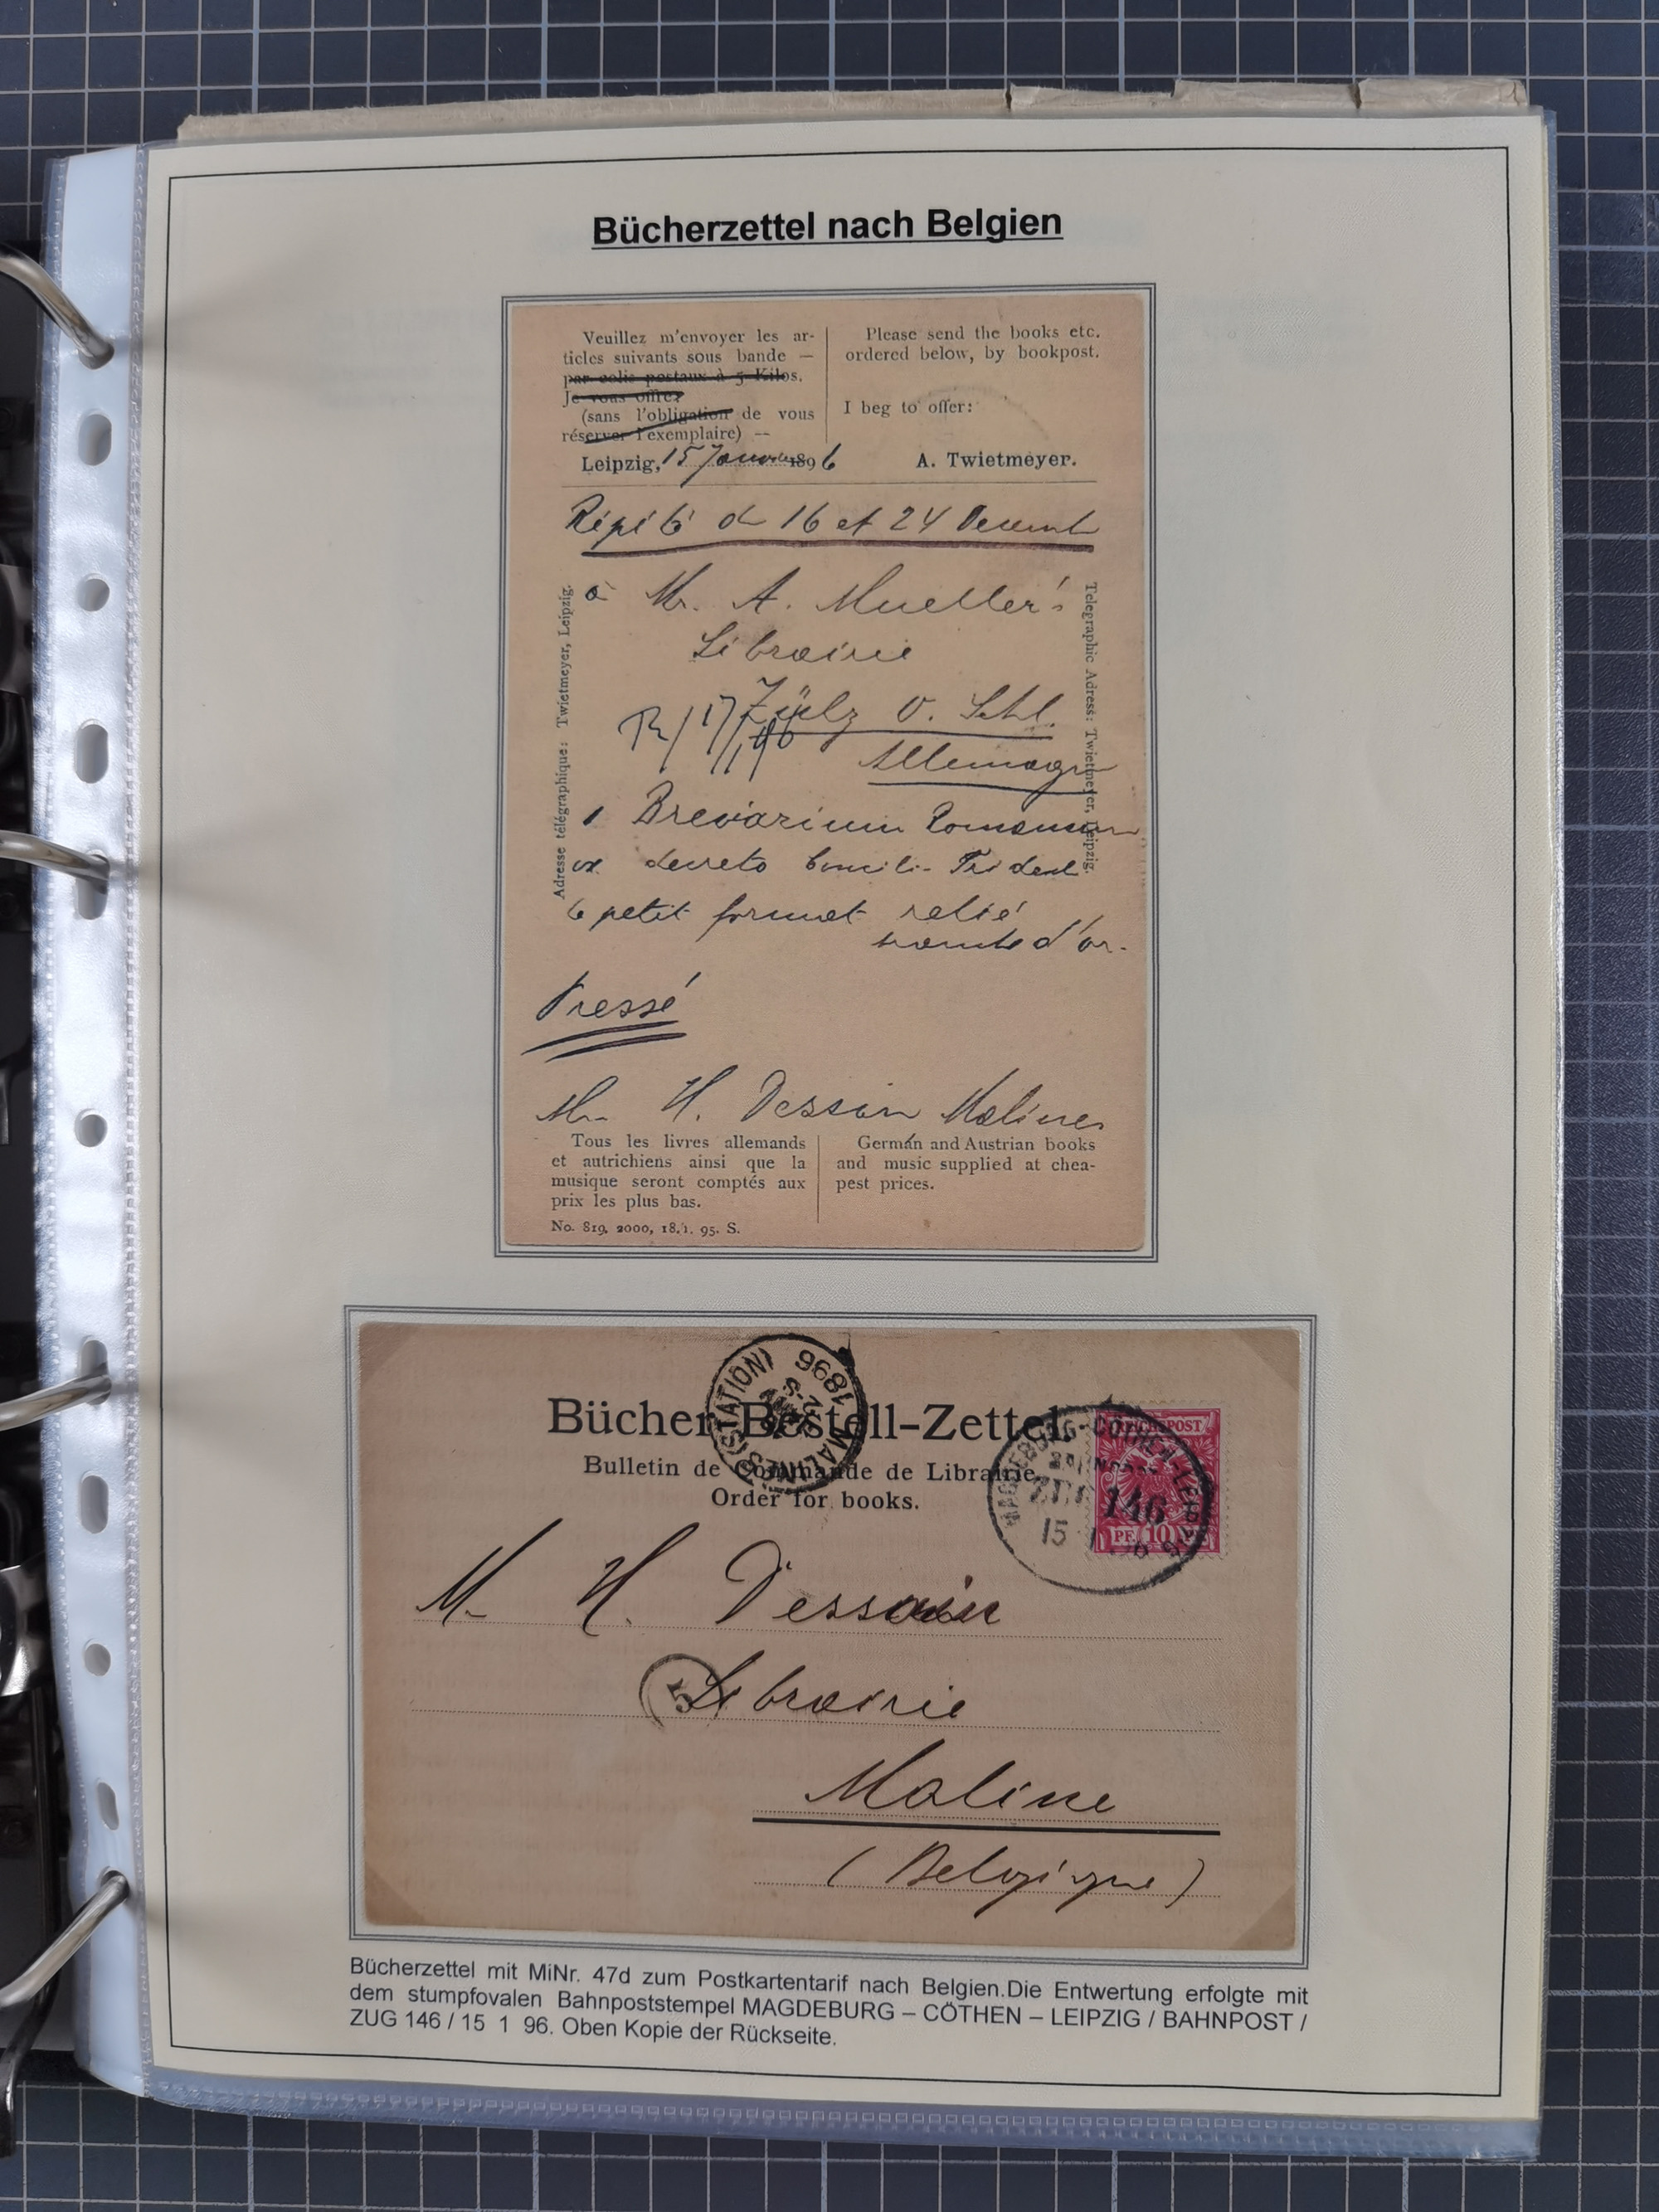 Bücherzettel nach Belgien
Veuillez m'envoyer les ar-
ticles suivants sous bande —
par colis postaux à 5 Kilos.
Je vous offre:
(sans l'obligation de vous
réserver l'exemplaire) —
Please send the books etc.
ordered below, by bookpost.
I beg to offer:
Leipzig, 15 Janvier 1896
A. Twietmeyer.
16 et 24
à Mr. A. Mueller's
Librairie
Zülz O. Schl.
17/1 96
Allemagne
Adresse télégraphique: Twietmeyer, Leipzig.
Telegraphic Adress: Twietmeyer, Leipzig.
1 Breviarium Romanum
ex decreto Trident
petit format relié
d'or.
Pressé
Mr. H. Dessain Malines
Tous les livres allemands
et autrichiens ainsi que la
musique seront comptés aux
prix les plus bas.
German and Austrian books
and music supplied at chea-
pest prices.
No. 819, 2000, 18.1. 95. S.
Bücher-Bestell-Zettel
Bulletin de Commande de Librairie.
Order for books.
MALINES (STATION)
1896
REICHSPOST
PF 10 PF
MAGDEBURG-CÖTHEN-LEIPZIG
ZUG 146
15 1
M. H. Dessain
5
Librairie
Maline
(Belgique)
Bücherzettel mit MiNr. 47d zum Postkartentarif nach Belgien.Die Entwertung erfolgte mit
dem stumpfovalen Bahnpoststempel MAGDEBURG – CÖTHEN – LEIPZIG / BAHNPOST /
ZUG 146 / 15 1 96. Oben Kopie der Rückseite.